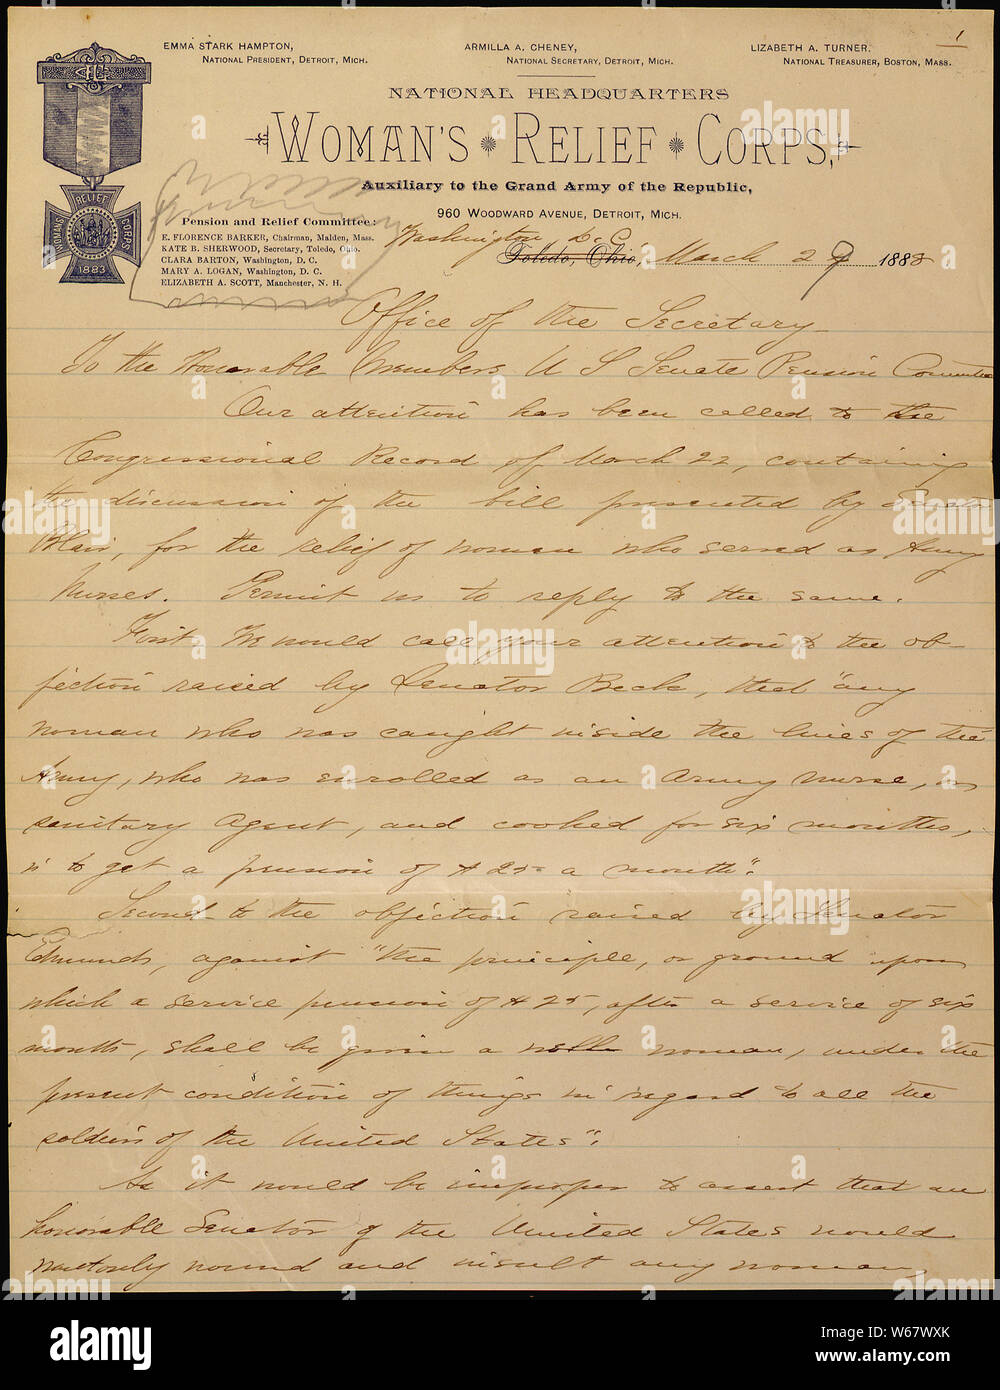 1
EMMA STARK HAMPTON,
NATIONAL PRESIDENT, DETROIT, MICH.
ARMILLA A. CHENEY,
NATIONAL SECRETARY, DETROIT, MICH.
LIZABETH A. TURNER,
NATIONAL TREASURER, BOSTON, MASS.
NATIONAL HEADQUARTERS
WOMAN'S RELIEF CORPS,
Auxiliary to the Grand Army of the Republic,
960 WOODWARD AVENUE, DETROIT, MICH.
WOMAN'S RELIEF CORPS
1883
Pension and Relief Committee:
E. FLORENCE BARKER, Chairman, Malden, Mass.
KATE B. SHERWOOD, Secretary, Toledo, Ohio.
CLARA BARTON, Washington, D. C.
MARY A. LOGAN, Washington, D. C.
ELIZABETH A. SCOTT, Manchester, N. H.
Washington D. C.
Toledo, Ohio, March 29 1888
Office of the Secretary
To the Honorable Members U S Senate Pension Committee
Our attention has been called to the
Congressional Record of March 22, containing
the discussion of the bill presented by Senator
Blair, for the relief of women who served as Army
Nurses. Permit us to reply to the same.
First We would call your attention to the ob-
jection raised by Senator Beck, that "any
woman who was caught inside the lines of the
Army, who was enrolled as an Army nurse, or
sanitary agent, and cooked for six months,
is to get a pension of $25 a month".
Second to the objection raised by Senator
Edmunds, against "the principle, or ground upon
which a service pension of $25, after a service of six
months, shall be given a woman, under the
present condition of things in regard to all the
soldiers of the United States".
As it would be improper to assert that an
honorable Senator of the United States would
wantonly wound and insult any woman,
alamy
W67WXK
www.alamy.com